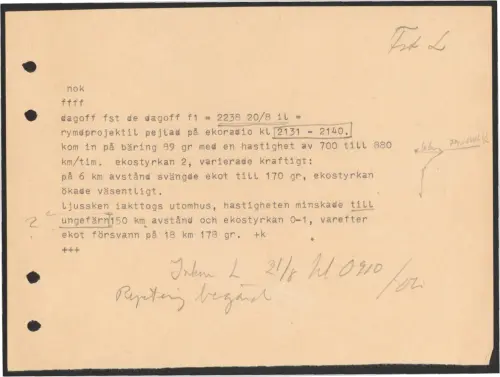 Fst L
nok
ffff
dagoff fst de dagoff f1 = 2238 20/8 il =
rymdprojektil pejlad på ekoradio kl 2131 - 2140.
kom in på bäring 89 gr med en hastighet av 700 till 880
km/tim. ekostyrkan 2, varierade kraftigt:
på 6 km avstånd svängde ekot till 170 gr, ekostyrkan
ökade väsentligt.
Ljussken iakttogs utomhus, hastigheten minskade till
? ungefärn 150 km avstånd och ekostyrkan 0-1, varefter
ekot försvann på 18 km 178 gr. +k
+++
Inkom L 21/8 kl 0910
Repetering begärd